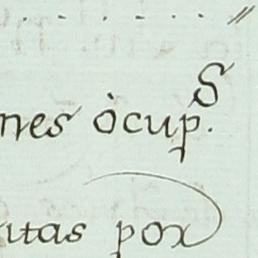 nes òcup.S
itas por